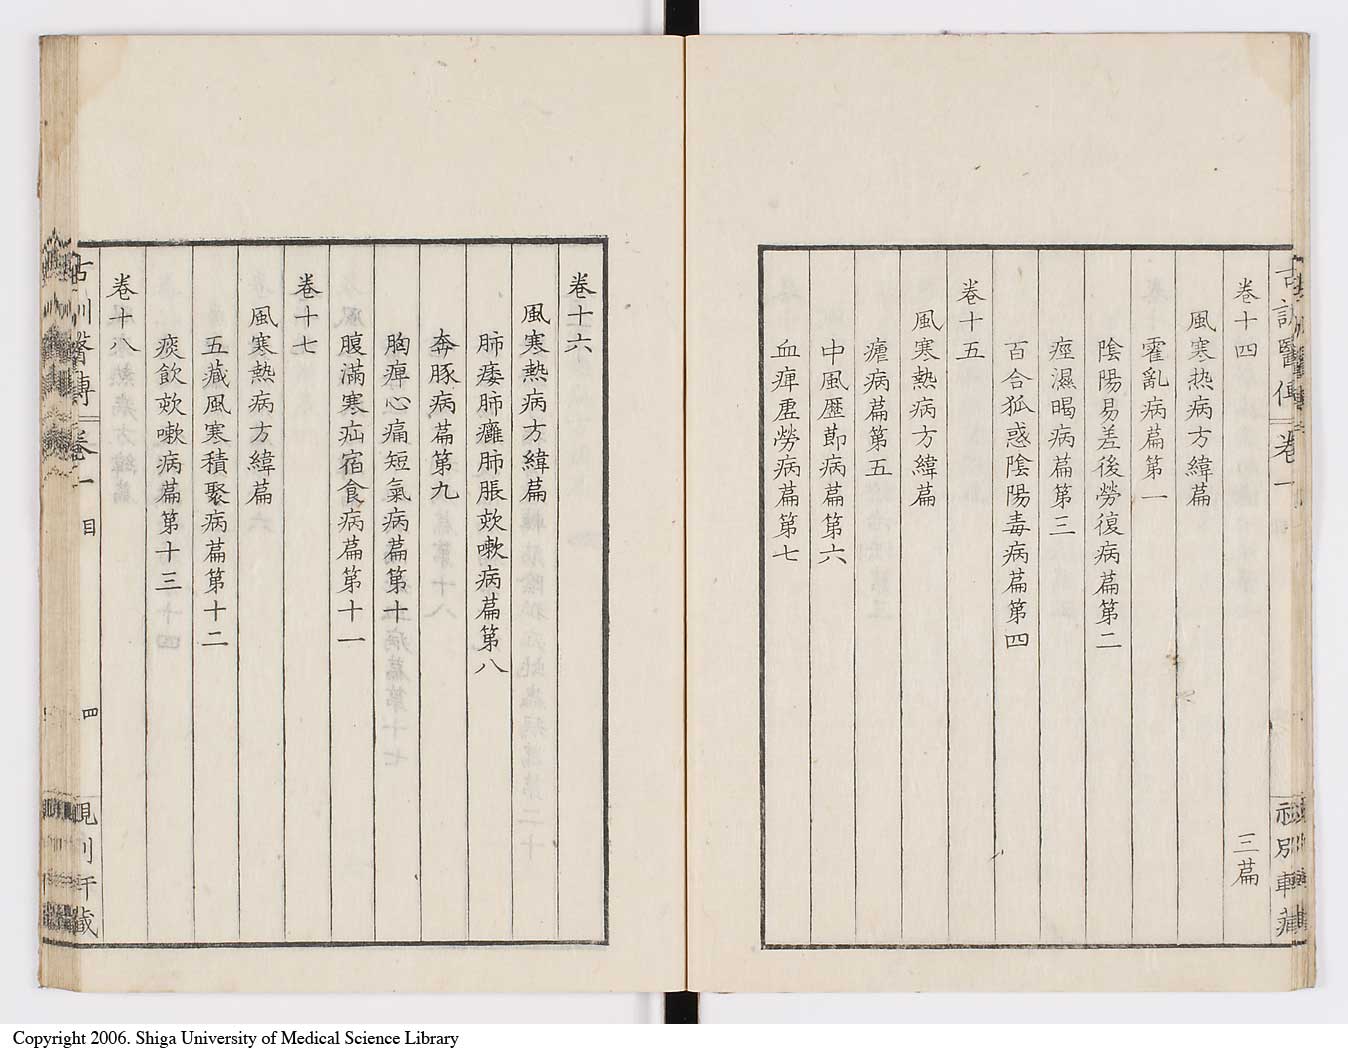 卷十四
三萹
風寒热病方緯萹
霍亂病萹第一
陰陽易差後勞復病萹第二
痙濕暍病萹第三
百合狐惑陰陽毒病萹第四
卷十五
風寒熱病方緯萹
瘧病萹第五
中風歷節病萹第六
血痺虚勞病萹第七
卷十六
風寒熱病方緯萹
肺痿肺癰肺脹欬嗽病萹第八
奔豚病萹第九
胸痺心痛短氣病萹第十
腹滿寒疝宿食病萹第十一
卷十七
風寒熱病方緯萹
五藏風寒積聚病萹第十二
痰飲欬嗽病萹第十三
卷十八
古訓醫傳
卷一
目
四
Copyright 2006. Shiga University of Medical Science Library